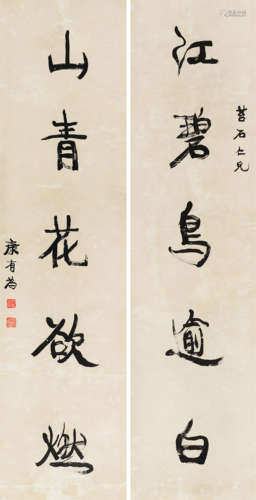 苔石仁兄
江碧鳥逾白
山青花欲燃
康有為